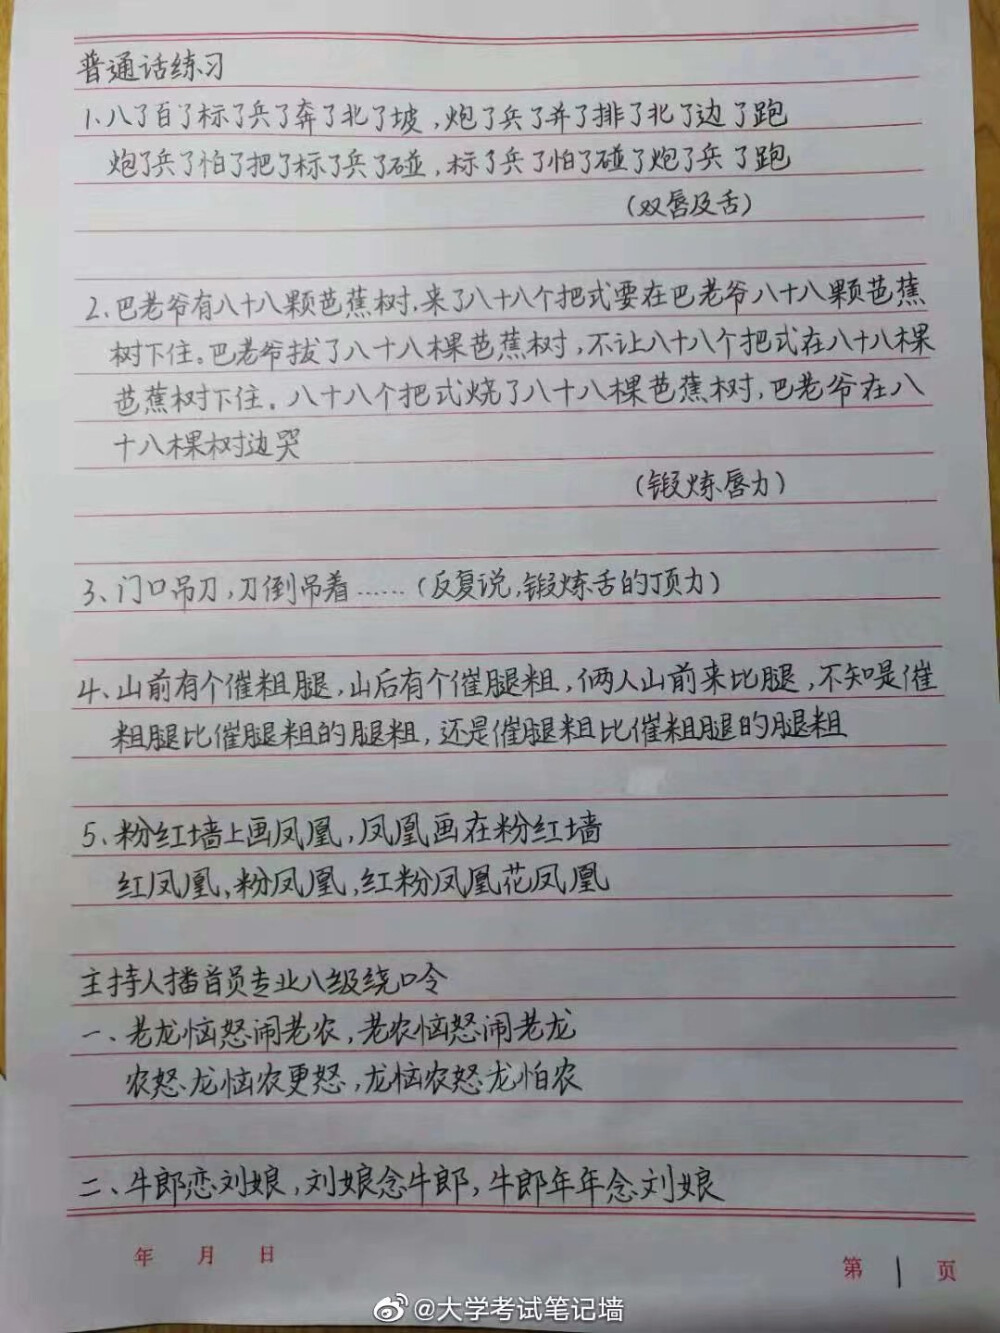 普通话练习
1、八了百了标了兵了奔了北了坡，炮了兵了并了排了北了边了跑
炮了兵了怕了把了标了兵了碰，标了兵了怕了碰了炮了兵了跑
（双唇及舌）
2、巴老爷有八十八颗芭蕉树，来了八十八个把式要在巴老爷八十八颗芭蕉
树下住。巴老爷拔了八十八棵芭蕉树，不让八十八个把式在八十八棵
芭蕉树下住。八十八个把式烧了八十八棵芭蕉树，巴老爷在八
十八棵树边哭
（锻炼唇力）
3、门口吊刀，刀倒吊着……（反复说，锻炼舌的顶力）
4、山前有个催粗腿，山后有个催腿粗，俩人山前来比腿，不知是催
粗腿比催腿粗的腿粗，还是催腿粗比催粗腿的腿粗
5、粉红墙上画凤凰，凤凰画在粉红墙
红凤凰，粉凤凰，红粉凤凰花凤凰
主持人播音员专业八级绕口令
一、老龙恼怒闹老农，老农恼怒闹老龙
农怒龙恼农更怒，龙恼农怒龙怕农
二、牛郎恋刘娘，刘娘念牛郎，牛郎年年念刘娘
年 月 日
第 1 页
@大学考试笔记墙